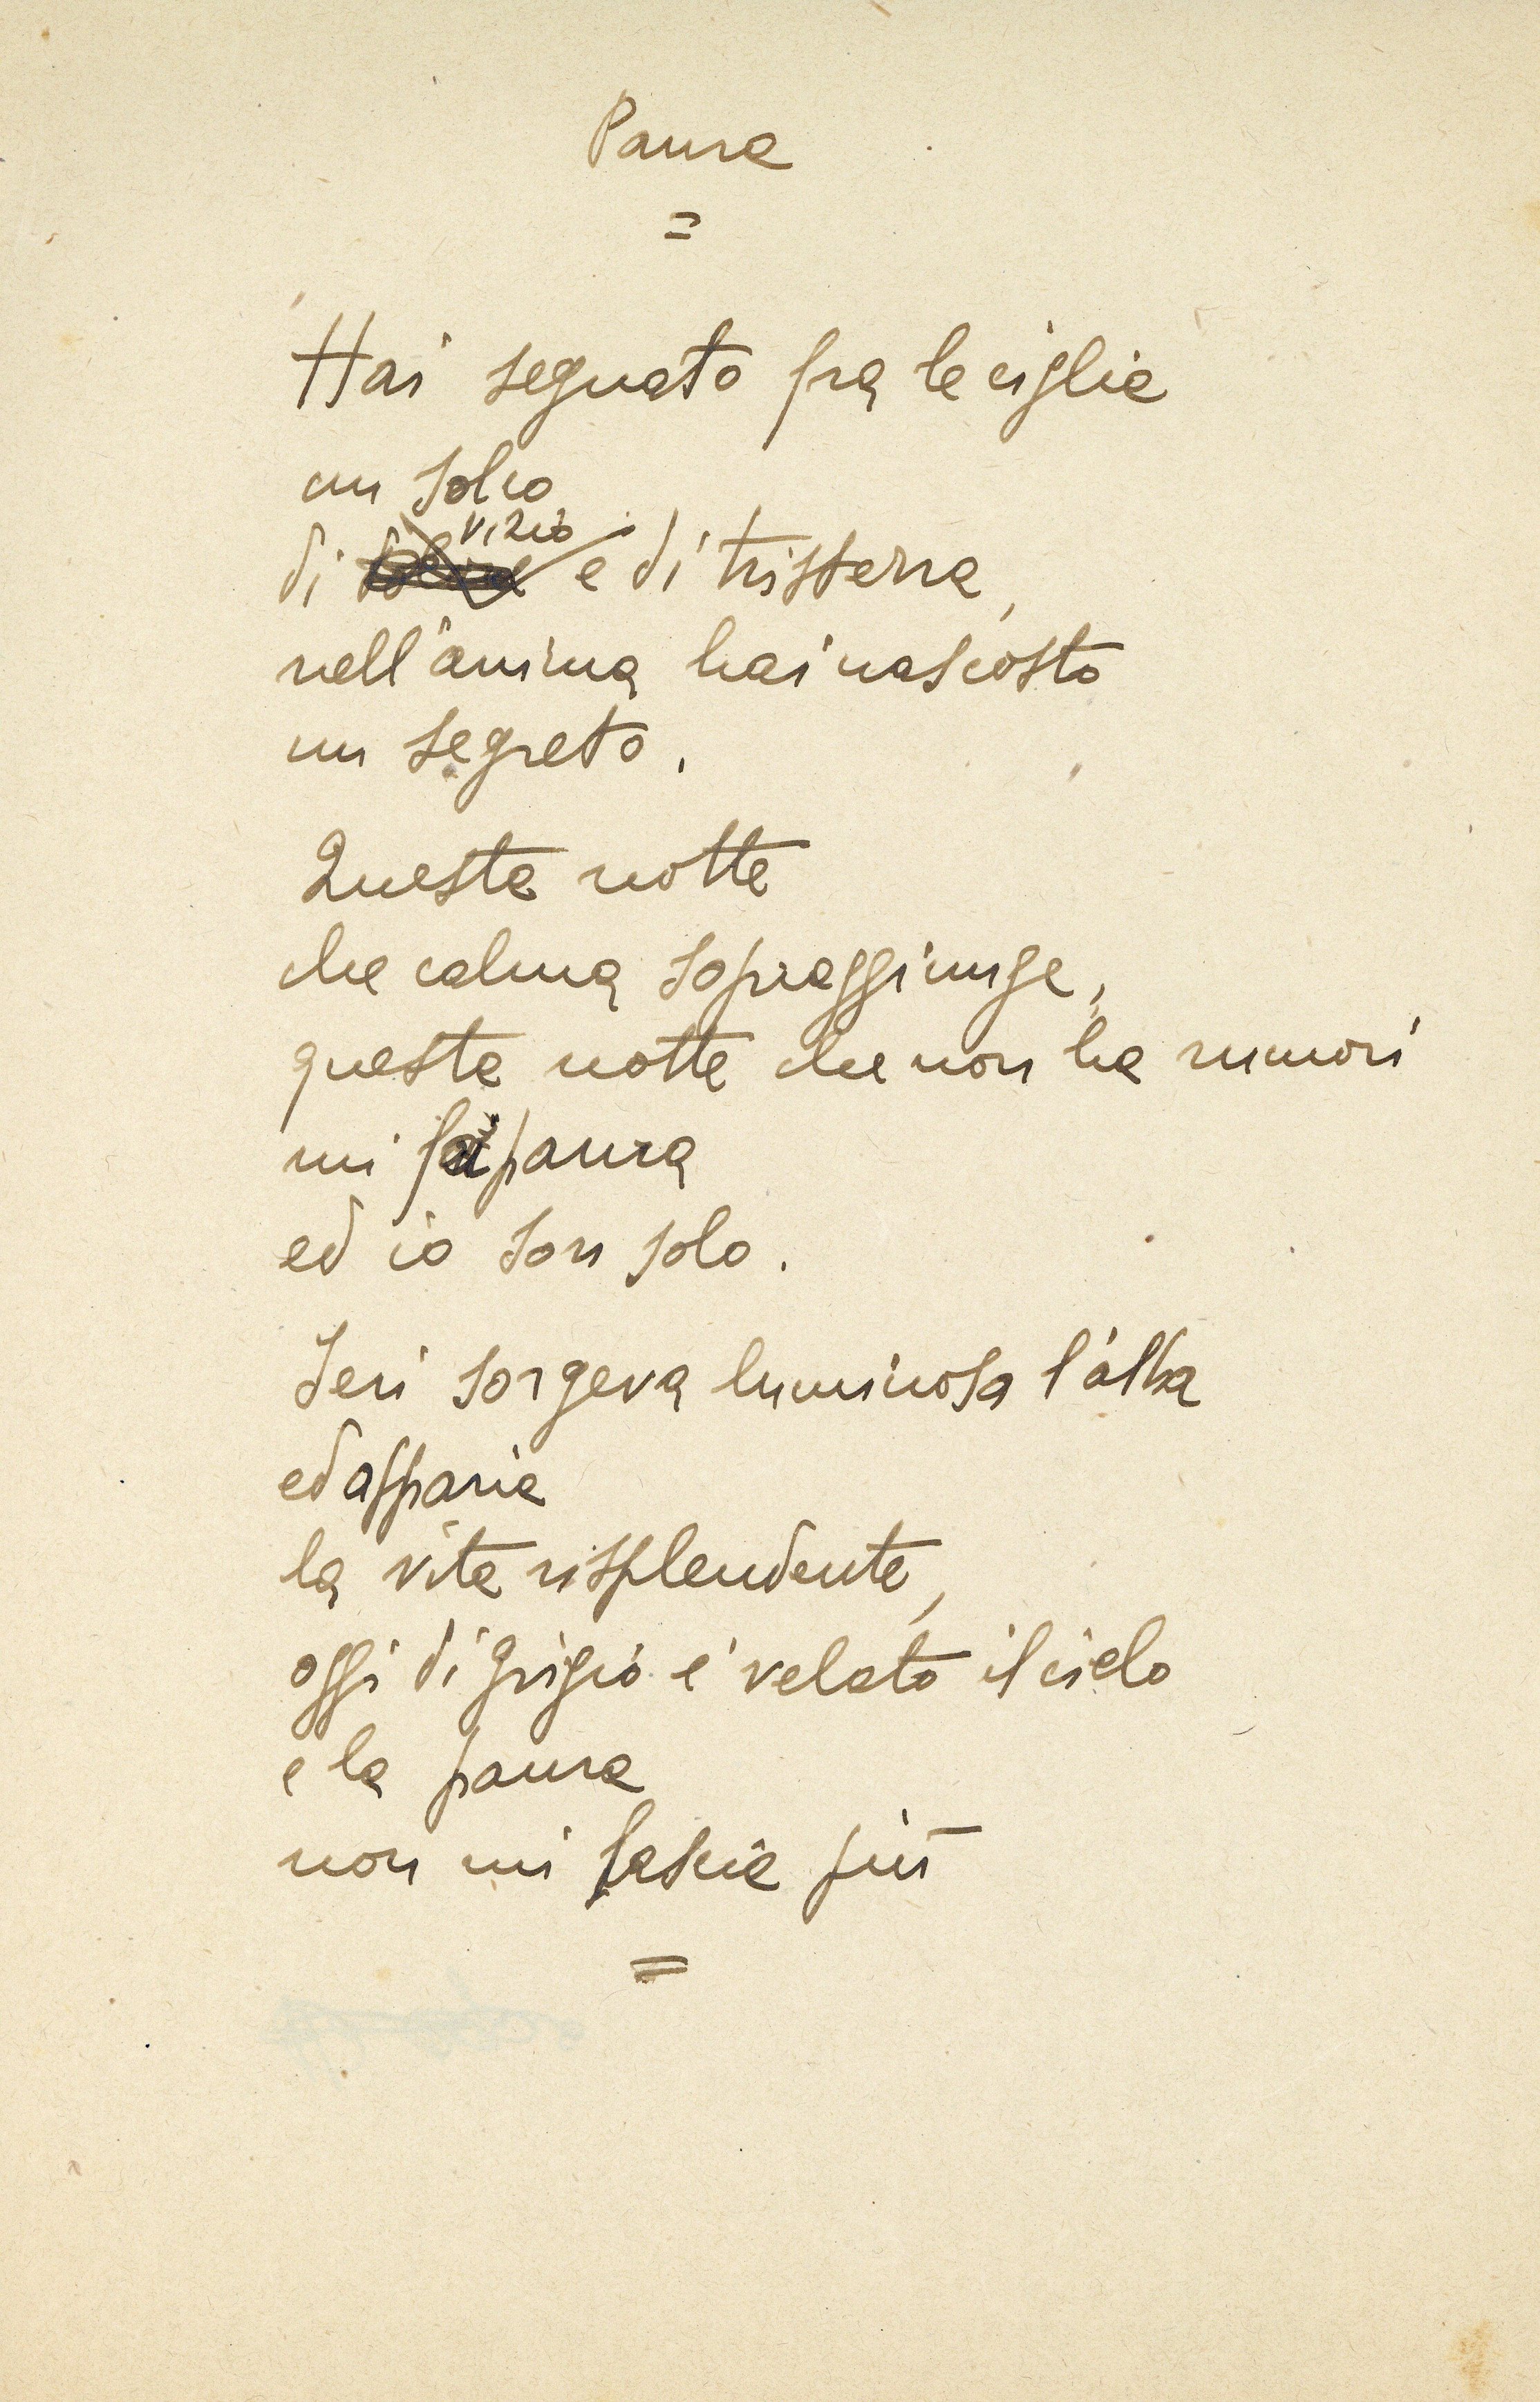 Paura
=
Hai segnato fra le ciglia
un solco
di vizio e di tristezza,
nell'anima hai nascosto
un segreto.
Questa notte
che calma sopraggiunge,
questa notte che non ha rumori
mi fa paura
ed io son solo.
Ieri sorgeva luminosa l'alba
ed apparia
la vita risplendente,
oggi di grigio è velato il cielo
e la paura
non mi lascia più
=